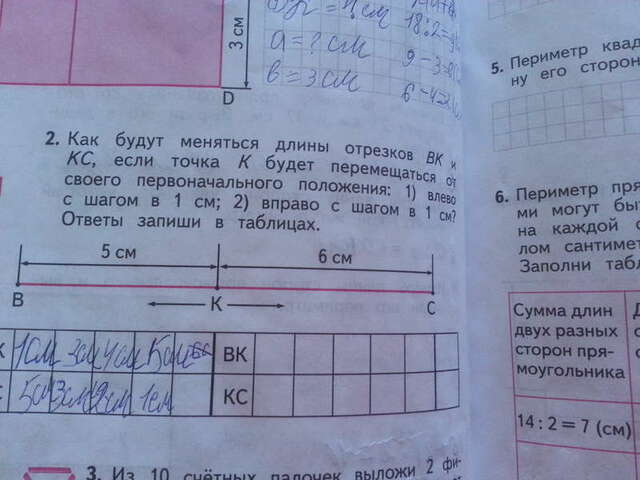 3 см
D
= ? см
18:2=
а = ? см
9 - 3
в = 3 см
2. Как будут меняться длины отрезков BK и
KC, если точка K будет перемещаться от
своего первоначального положения: 1) влево
с шагом в 1 см; 2) вправо с шагом в 1 см?
Ответы запиши в таблицах.
5 см
6 см
B
K
C
1см 3см 4см 5см
BK
5см 3см 2см 1см
KC
3. Из 10 счётных палочек выложи 2 фи-
5. Периметр квад
ну его сторон
6. Периметр пря
ми могут бы
на каждой с
лом сантимет
Заполни таб
Сумма длин
двух разных
сторон пря-
моугольника
14 : 2 = 7 (см)